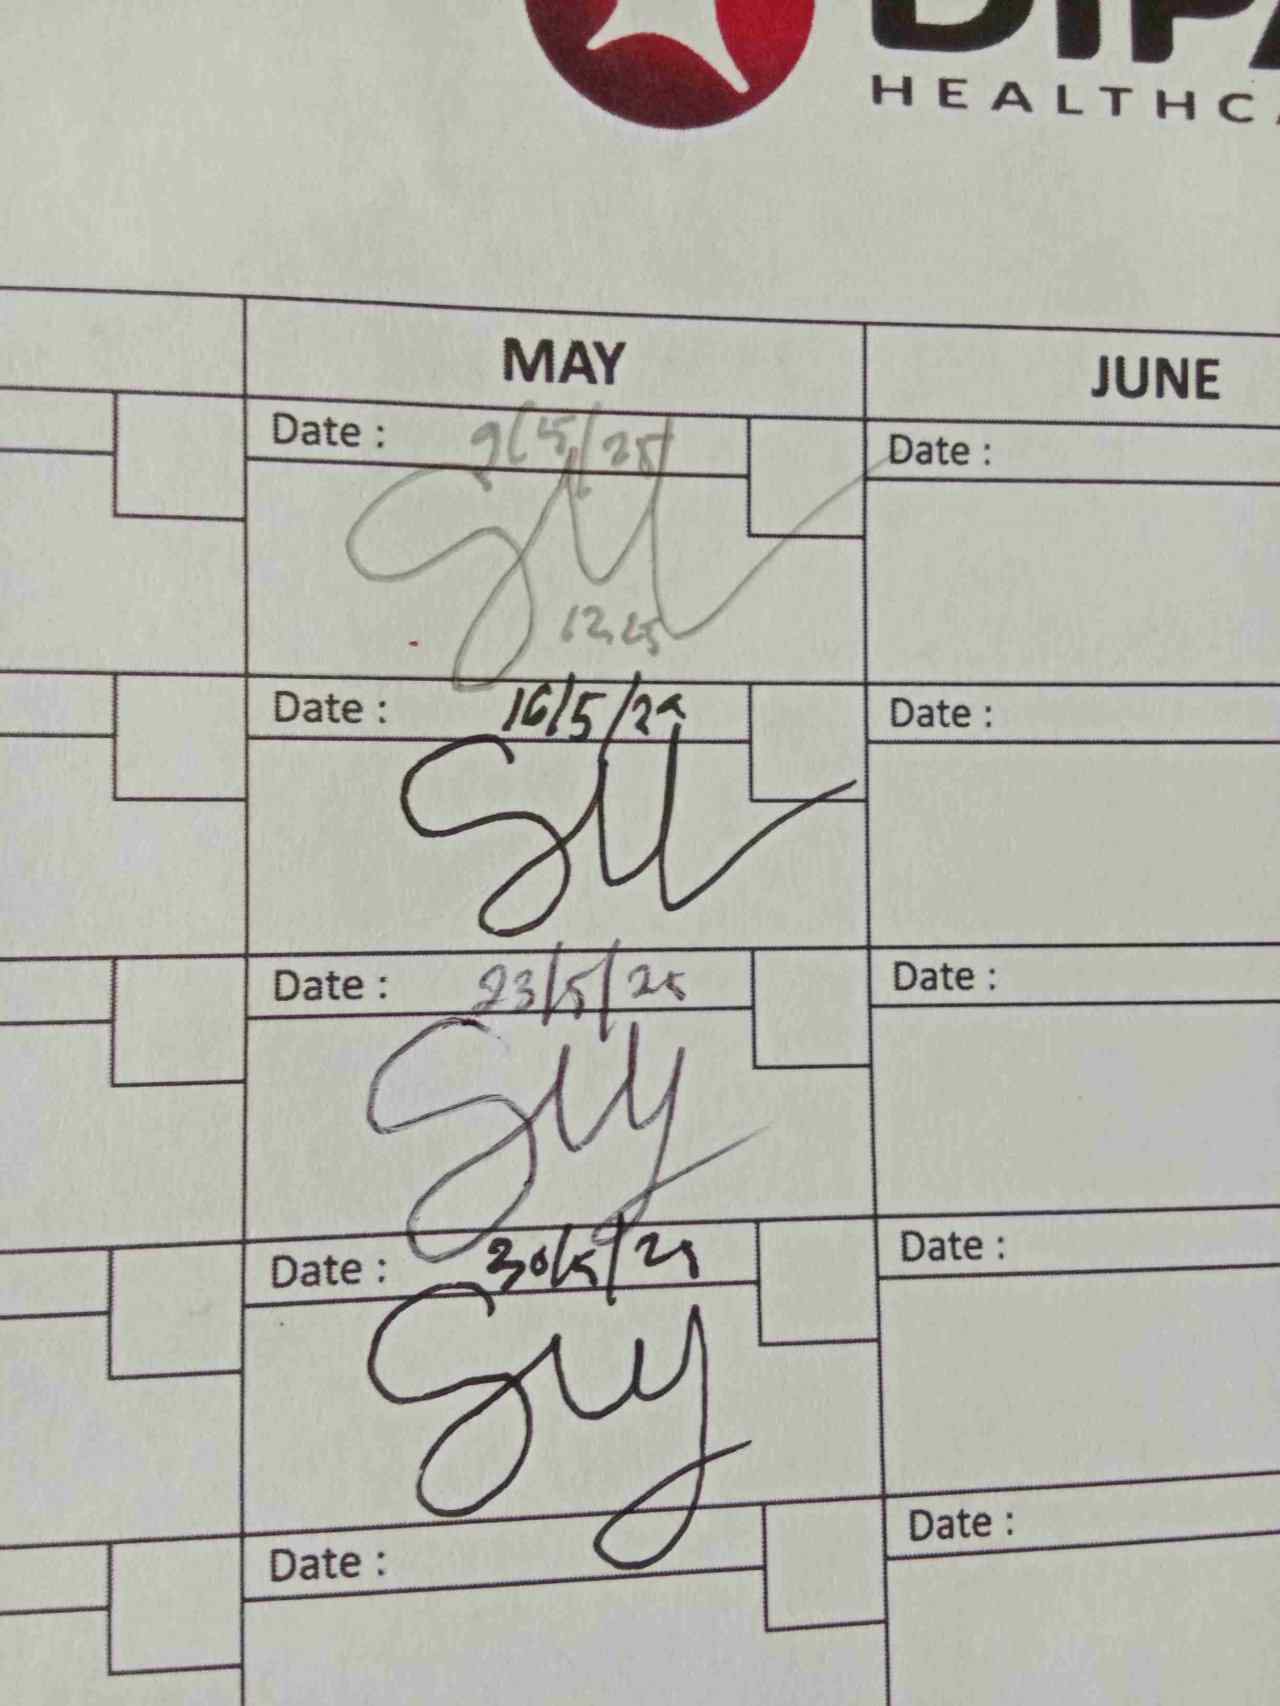 HEALTHCA
MAY JUNE
Date : 9/5/25 Date :
12.25
Date : 16/5/25 Date :
Date : 23/5/25 Date :
Date : 30/5/25 Date :
Date : Date :